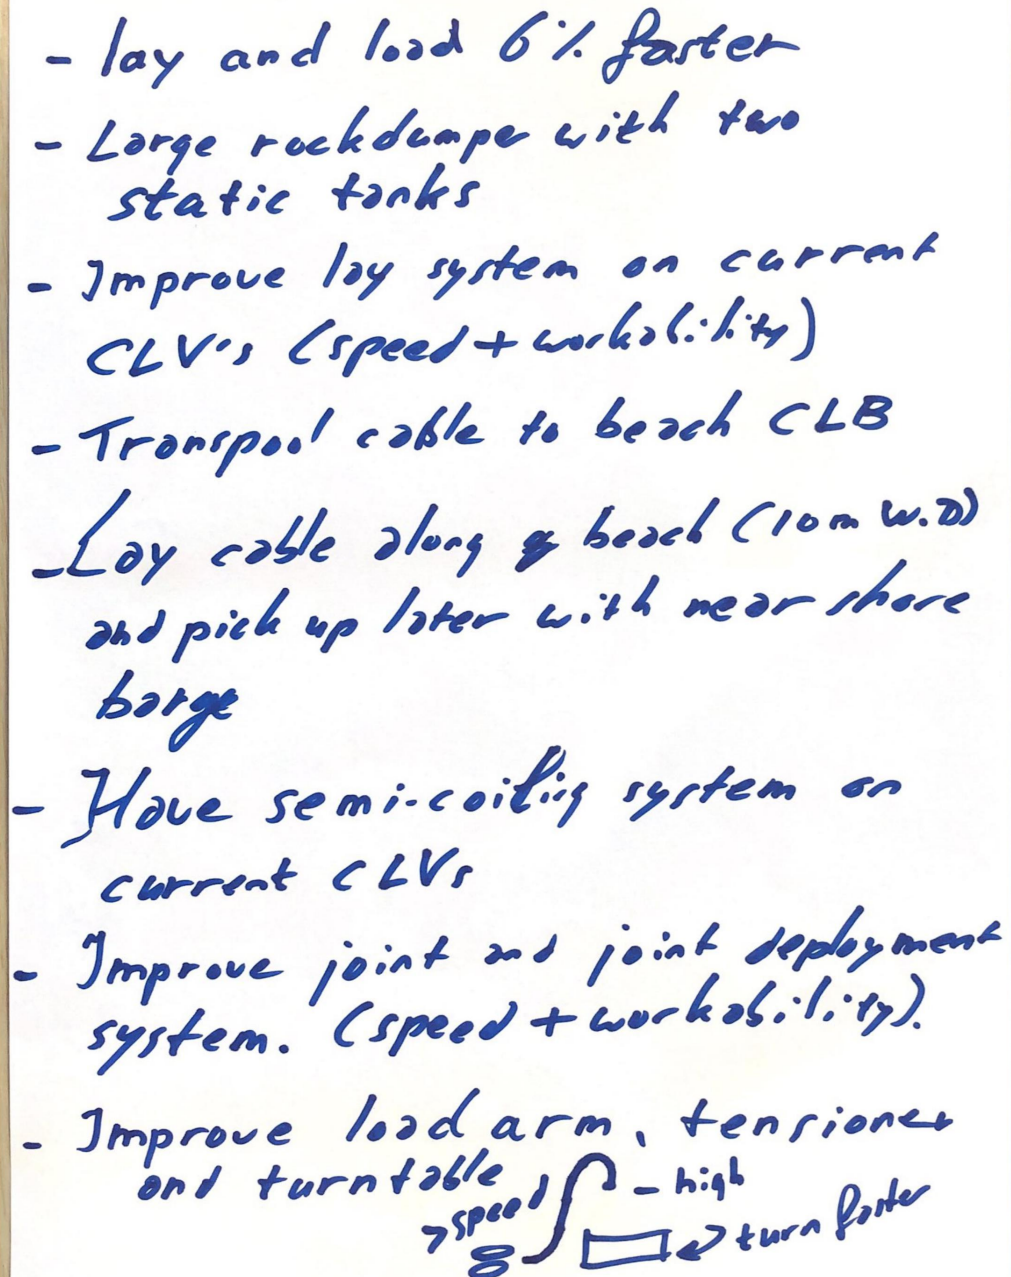 - lay and load 6% faster
- Large rockdumper with two
static tanks
- Improve lay system on current
CLV's (speed + workability)
- Transpool cable to beach CLB
- Lay cable along beach (10m W.D)
and pick up later with near shore
barge
- Have semi-coiling system on
current CLVs
- Improve joint and joint deployment
system. (speed + workability).
- Improve load arm, tensioner
and turntable
speed - high
turn faster